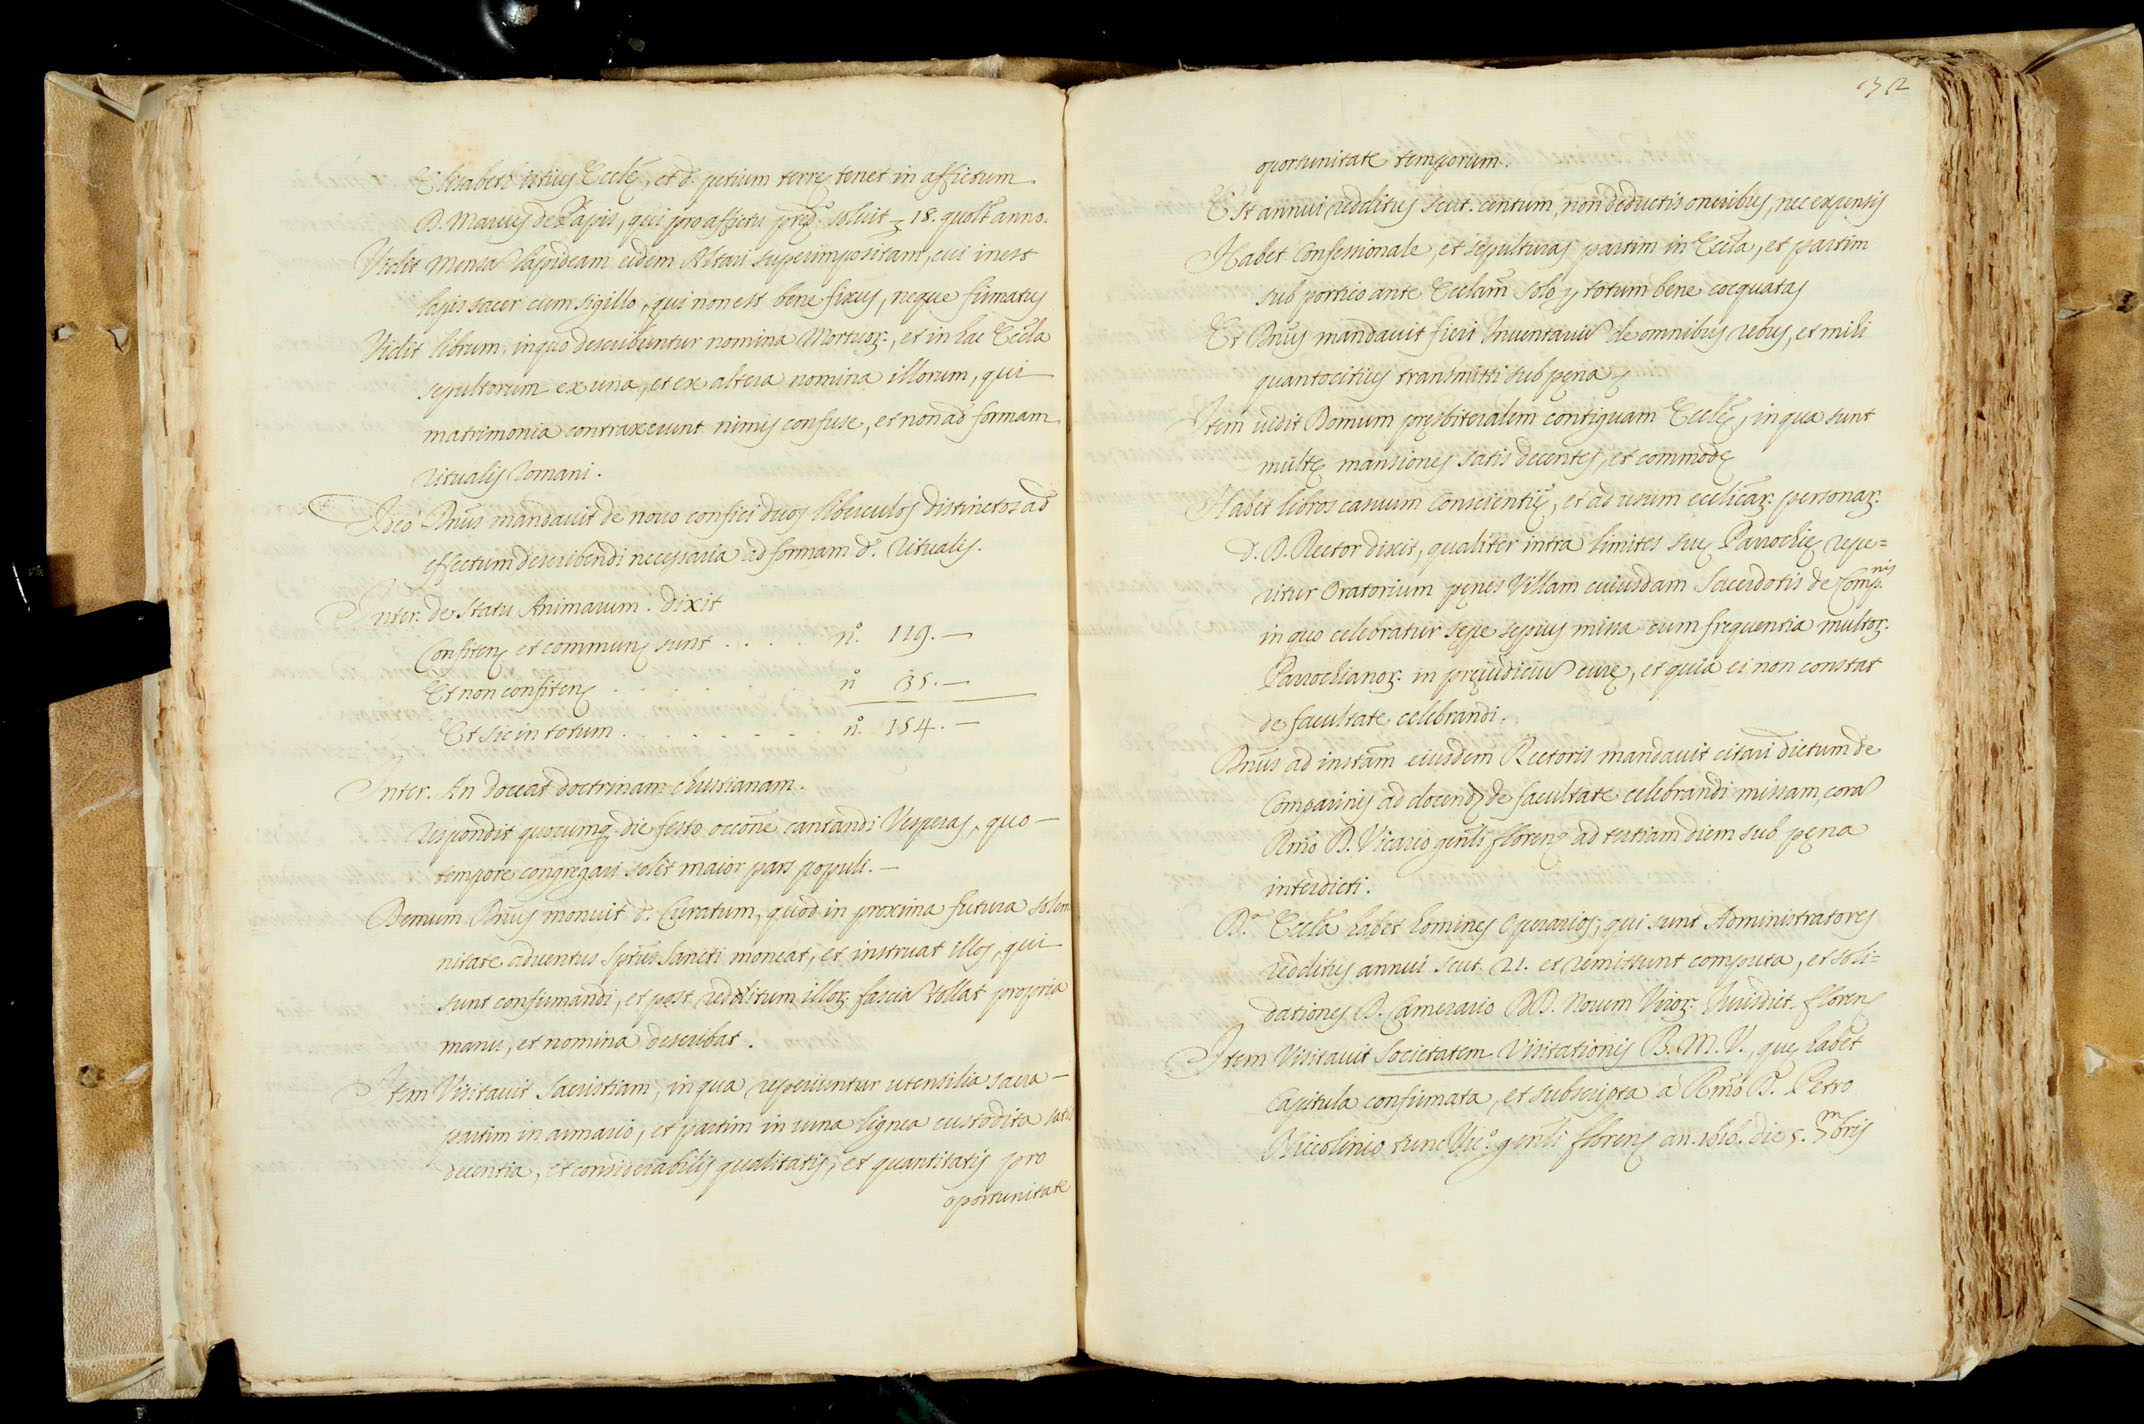 Elisabeth istius Eccłę, et d. petium terrę tenet in affictum
D. Marcus de Lapis, qui pro affictu pred.º soluit 18. quolt anno.
Vidit mensā lapideam eidem Altari superimpositam, cui inest
lapis sacer cum sigillo, qui non est bene fixus, neque firmatus
Vidit librum, in quo describuntur nomina Mortuoꝝ, et in hac Eccła
sepultorum ex una, et ex altera nomina illorum, qui
matrimonia contraxerunt nimis confuse, et non ad formam
ritualis Romani.
Ideo Dnūs mandavit de novo confici duos liberculos distinctos ad
effectum describendi necessaria ad formam d.i Ritualis.
Inter. de statu Animarum. dixit
Confiten. et commun. sunt . . . . nº. 119. —
Et non confiten. . . . . . . nº 35. —
Et sic in totum . . . . . . . . nº. 154. —
Inter. An doceat doctrinam christianam.
respondit quocumq. die festo occōne cantandi Vesperas, quo —
tempore congregari solet maior pars populi. —
Demum Dnūs monuit d. Curatum, quod in proxima futura solem
nitate adventus Sptūs Sancti moneat, et instruat illos, qui
sunt confirmandi, et post redditum illoꝝ fasciā tollat propria
manu, et nomina describat.
Item Visitavit Sacristiam, in qua reperiuntur utensilia sacra —
partim in armario, et partim in una lignea custodita satis
decentia, et considerabilis qualitatis, et quantitatis pro
oportunitate
132
oportunitate temporum.
Est annui redditus scut. centum, non deductis oneribus, nec expensis
Habet Confessionale, et sepulturas partim in Eccła, et partim
sub portico ante Ecclam̄ solo totum bene coequatas
Et Dnūs mandavit fieri Inventariū de omnibus rebus, et mihi
quantocitius transmitti sub pęna
Item vidit Domum pręsbiteralem contiguam Eccłę, in qua sunt
multę mansiones satis decentes, et commodę
Habet libros casuum Conscientię, et ad usum ecclicāꝝ personaꝝ.
d. D. Rector dixit, qualiter intra limites suę Parrochię repe=
ritur Oratorium penes Villam cuiusdam Sacerdotis de Comp.nis
in quo celebratur sępe sępius missa cum frequentia multoꝝ.
Parrochianoꝝ. in pręiudiciū curę, et quia ei non constat
de facultate celebrandi.
Dnūs ad instām eiusdem Rectoris mandavit citari dictum de
Comparinis ad docend. de facultate celebrandi missam, corā
Rmō D. Vicario genłi floren. ad tertiam diem sub pęna
interdicti.
D.a Eccła habet homines Operarios, qui sunt Administratores
redditus annui scut. 21. et remittunt computa, et soli=
dationes D. Camerario DD. Novem Viroꝝ. Jurisdict. floren.
Item Visitavit Societatem Visitationis B. M. V., quę habet
Capitula confirmata, et subscripta à Rmō D. Petro
Niccolinio tunc Vic.º genłi floren. an. 1616. die 5. 9mbris